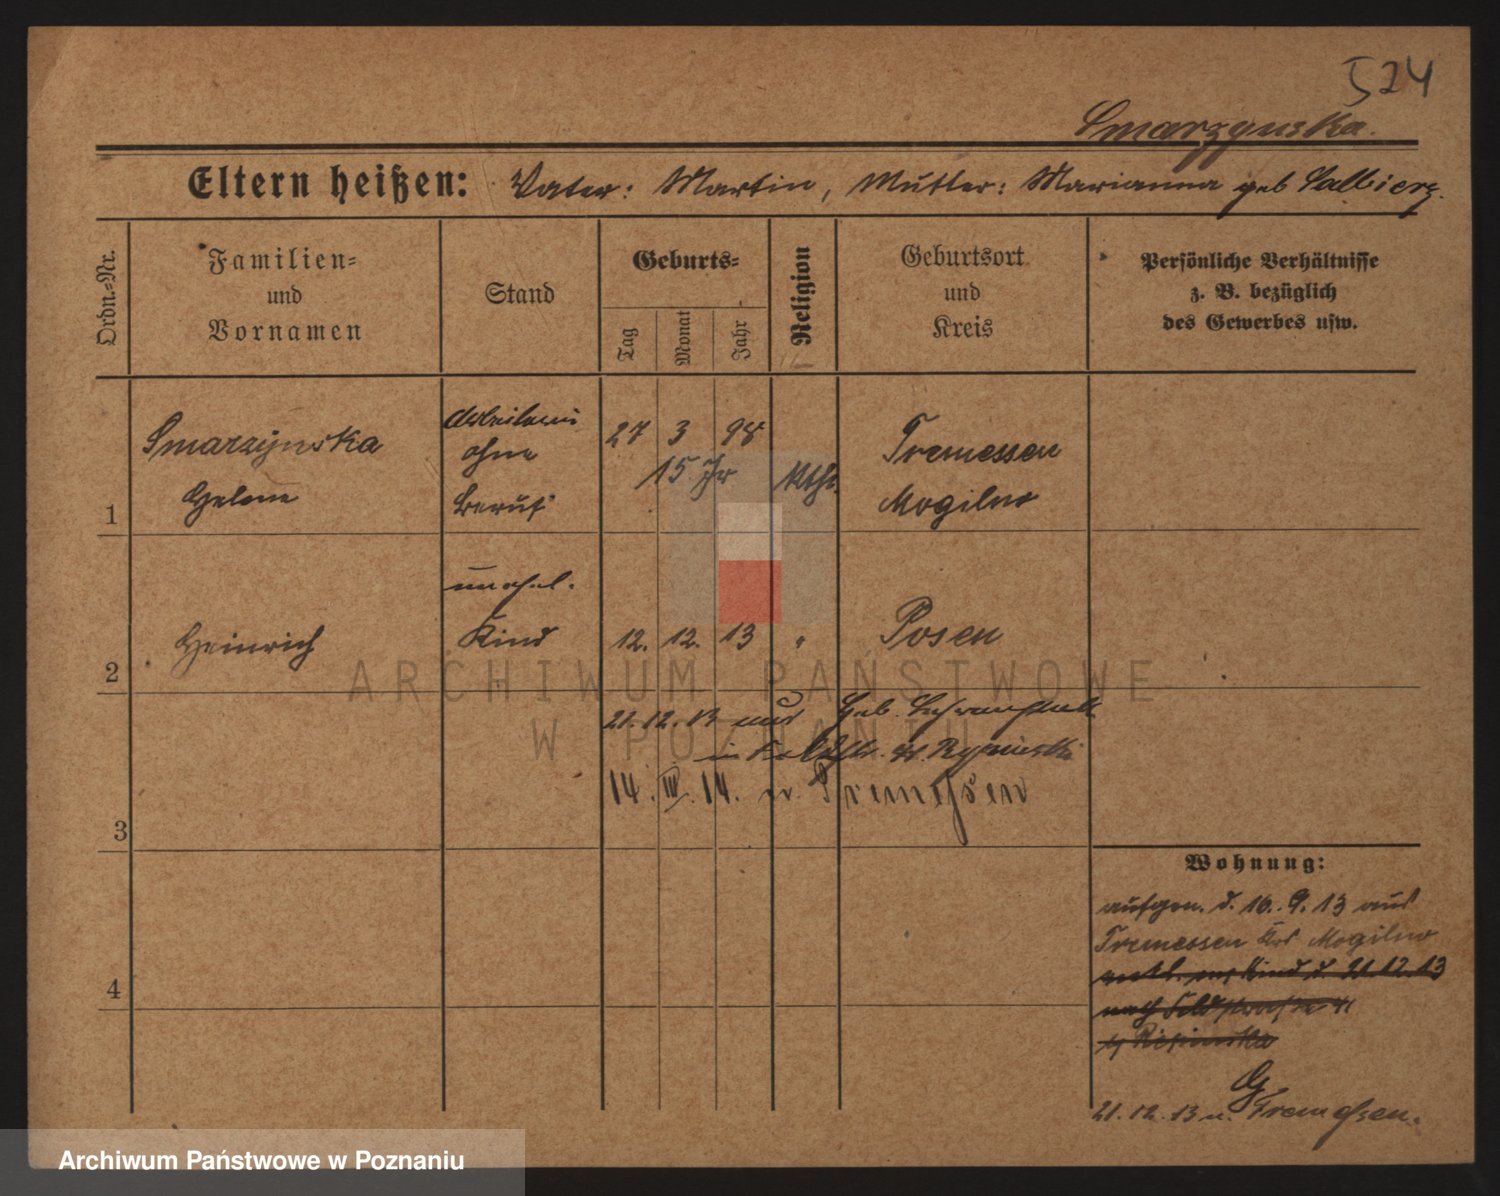 524
Smarzynska.
Eltern heißen: Vater: Martin, Mutter: Marianna geb Salbierz.
Ordn.-Nr.
Familien-
und
Vornamen
Stand
Geburts-
Tag
Monat
Jahr
Religion
Geburtsort
und
Kreis
Persönliche Verhältnisse
z. B. bezüglich
des Gewerbes usw.
1
Smarzynska
Helene
Arbeiterin
ohne
Beruf
27 3 98
15 Jhr
kth.
Tremessen
Mogilno
2
Heinrich
unehel.
Kind
12. 12. 13
"
Posen
21. 12. 13 aus Heb.
in
14. III. 14. n. Tremessen
3
4
Wohnung:
aufgen. d. 16. 9. 13 aus
Tremessen Krs Mogilno
entl. mit Kind d. 21 12 13
nach Feldstraße
21. 12. 13 n. Tremessen.
ARCHIWUM PAŃSTWOWE
W POZNANIU
Archiwum Państwowe w Poznaniu